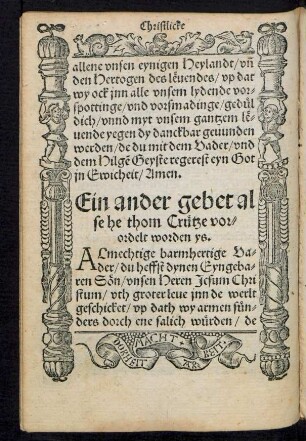 Christlicke
allene vnsen eynigen Heylandt/ vñ
den Hertogen des lẽuendes/ vp dat
wy ock jnn alle vnsem lydende vor-
spottinge/ vnd vorsmadinge/ gedůl
dich/ vnnd myt vnsem gantzem lẽ-
uende yegen dy danckbar geuunden
werden/ de du mit dem Vader/ vnd
dem Hilgẽ Geyste regerest eyn Got
jn Ewicheit/ Amen.
Ein ander gebet al
se he thom Crütze vor-
ordelt worden ys.
ALmechtige barmhertige Va-
der/ du heffst dynen Eyngeba-
ren Sõn/ vnsen Heren Jesum Chri
stum/ vth groter leue jnn de werlt
geschicket/ vp dath wy armen sün-
ders dorch ene salich würden/ de
MACHT
DORHEIT
ARBEIT